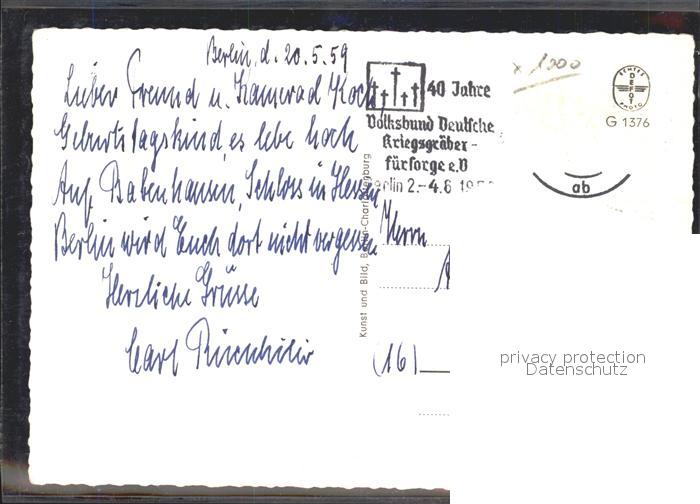 Berlin, d. 20.5.59
Lieber Freund u. Kamerad Koch
Geburtstagskind, es lebe hoch
Auf, Babenhausen, Schloss in Hessen
Berlin wird Euch dort nicht vergessen
Herzliche Grüsse
Carl
40 Jahre
Volksbund Deutsche
Kriegsgräber-
fürsorge e.V
Berlin 2.-4.6 1959
Kunst und Bild, Berlin-Charlottenburg
x 1000
ECHTES
DEFOT
PHOTO
G 1376
ab
Herrn
(16)
privacy protection
Datenschutz